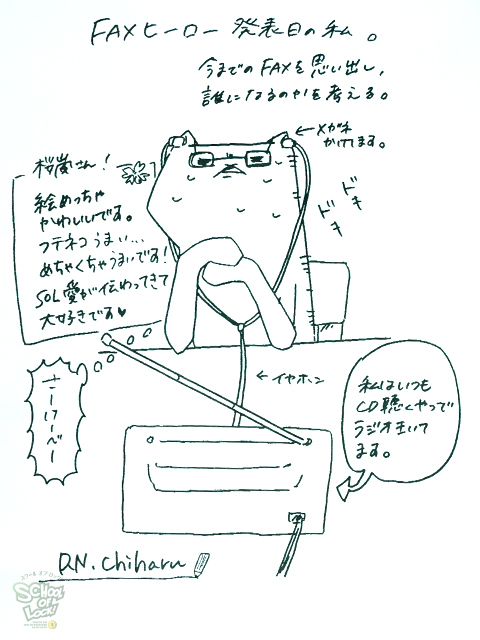 FAXヒーロー発表日の私。
今までのFAXを思い出し、
誰になるのかを考える。
←メガネ
かけてます。
桜嵐さん!
絵めっちゃ
かわいいです。
フテネコうまい…
めちゃくちゃうまいです!
SOL愛が伝わってきて
大好きです♥
ドキ
ドキ
←イヤホン
さーけーべー
私はいつも
CD聴くやつで
ラジオきいて
ます。
R.N. Chiharu
スクールオブロック
SCHOOL
OF
LOCK!